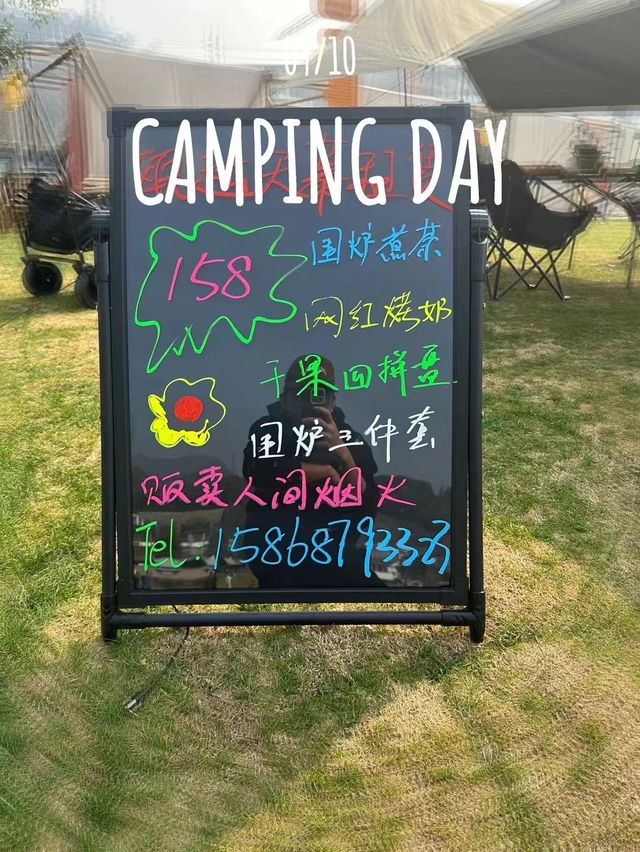 CAMPING DAY
158
围炉煮茶
网红烤奶
干果回拼盘
围炉三件套
贩卖人间烟火
Tel. 15868793323